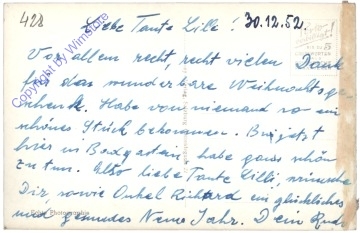 428
Liebe Tante Lilli! 30.12.52.
Vor allem recht, recht vielen Dank
für das wunderbare Weihnachtsge-
schenk. Habe von niemand so ein
schönes Stück bekommen. Bin jetzt
hier in Badgastein, habe ganz schön
zu tun. Also liebe Tante Lilli, wünsche
Dir, sowie Onkel Richard ein glückliches
und gesundes Neues Jahr. Dein Rudi
Copyright by Wimstore